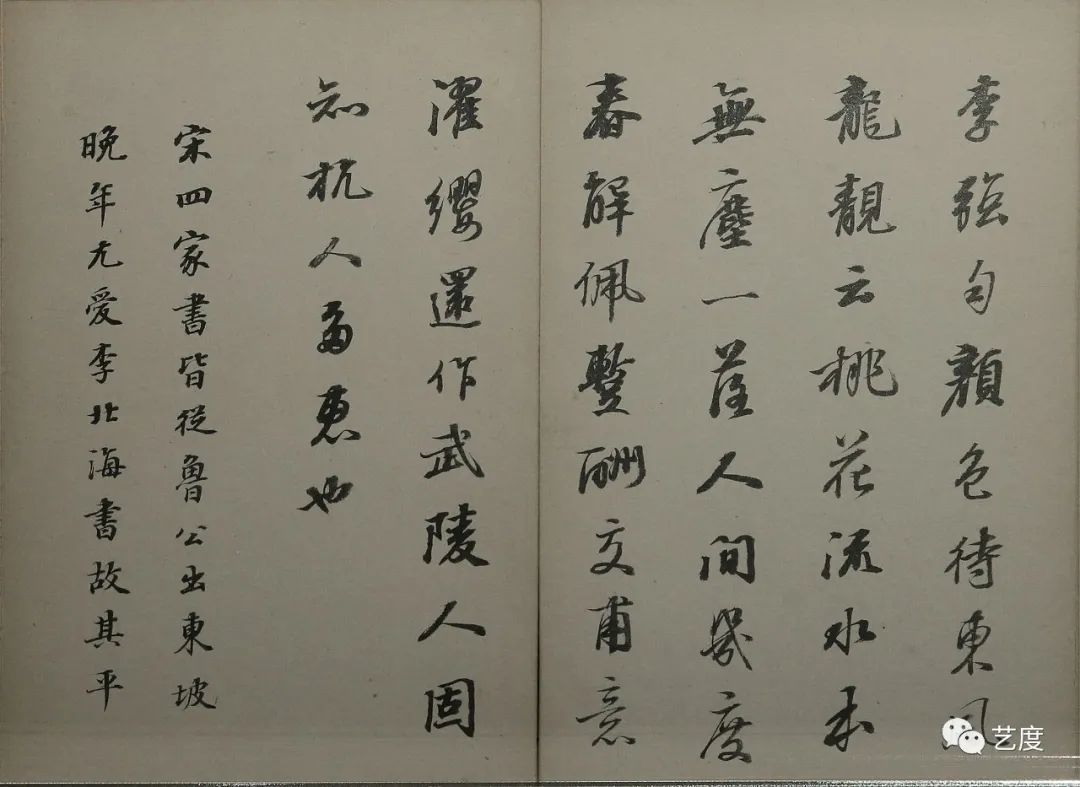 李強匀顏色待東風
龍靚云桃花流水本
無塵一落人間幾度
春解佩暫酬交甫意
濯纓還作武陵人固
知杭人多惠也
宋四家書皆從魯公出東坡
晚年尤愛李北海書故其平
艺度